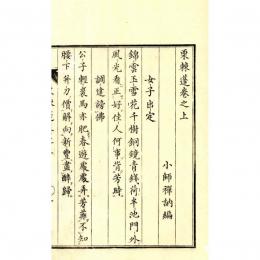 栗棘蓬卷之上
小師禪訥編
女子出定
錦雲玉雪花千樹銅鏡青錢荷半池門外
風光看正好佳人何事背芳時
調達謗佛
公子輕裘馬亦肥春遊處處弄芳菲不知
腰下弁力價解向新豐盡醉歸